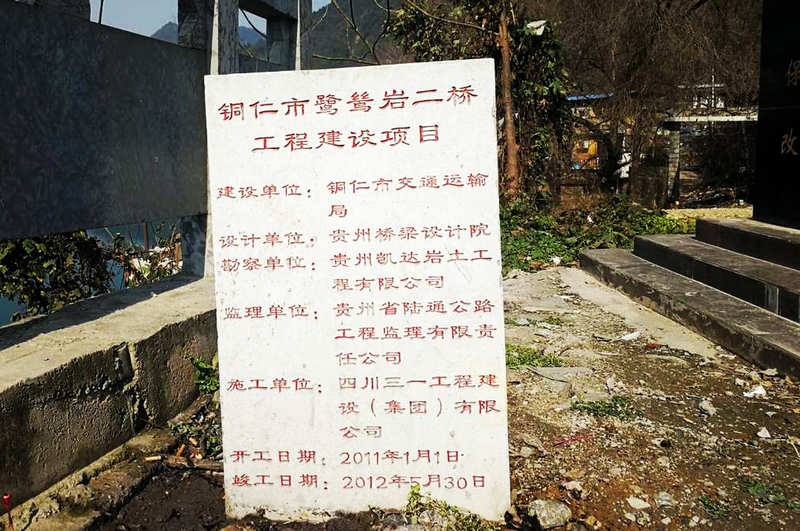 铜仁市鹭鸶岩二桥
工程建设项目
建设单位：铜仁市交通运输
局
设计单位：贵州桥梁设计院
勘察单位：贵州凯达岩土工
程有限公司
监理单位：贵州省陆通公路
工程监理有限责
任公司
施工单位：四川三一工程建
设（集团）有限
公司
开工日期：2011年1月1日
竣工日期：2012年5月30日
改